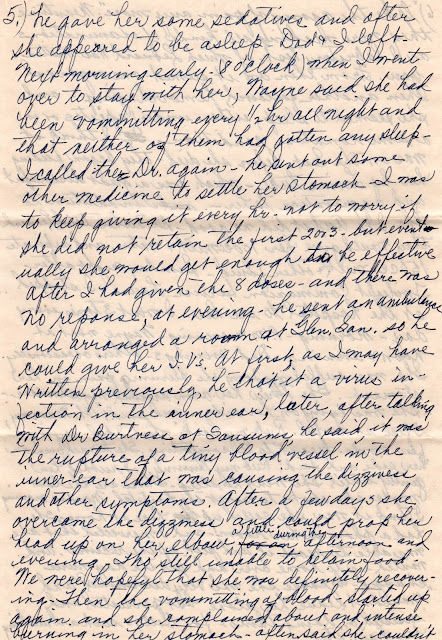 5.) he gave her some sedatives and after
she appeared to be asleep Dad & I left.
Next morning early (8 o'clock) when I went
over to stay with her, Wayne said she had
been vommitting every 1/2 hr all night and
that neither of them had gotten any sleep-
I called the Dr. again - he sent out some
other medicine to settle her stomach - I was
to keep giving it every hr. - not to worry if
she did not retain the first 2 or 3 - but event-
ually she would get enough to be effective
After I had given the 8 doses - and there was
no reponse, at evening - he sent an ambulance
and arranged a room at Glen. San. so he
could give her I.V.s. At first, as I may have
written previously, he that it a virus in-
fection in the inner ear, later, after talking
with Dr Burtness at Sansums, he said it was
the rupture of a tiny blood vessel in the
inner ear that was causing the dizziness
and other symptoms. After a few days she
overcame the dizziness and could prop her
head up on her elbow a little during the afternoon and
evening. Tho still unable to retain food
We were hopeful that she was definitely recover-
ing. Then the vommitting of blood - started up
again, and she complained about and intense
burning in her stomach - often said she couldn't